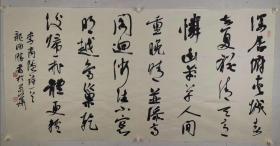 深居俯夹城春
去夏犹清天意
憐幽草人间
重晚晴並添高
阁迥微注小窗
明越鸟巢乾
後归飛体更轻
李商隐诗一首